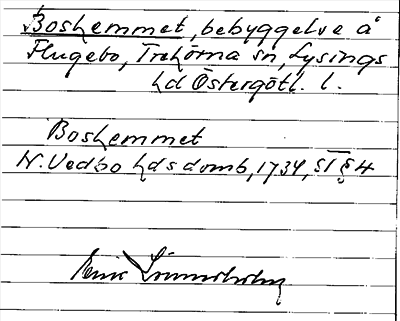 Boshemmet, bebyggelse å
Flugebo, Trehörna sn, Lysings
hd Östergötl. l.
Boshemmet
N. Vedbo hds domb, 1734, ST § 4